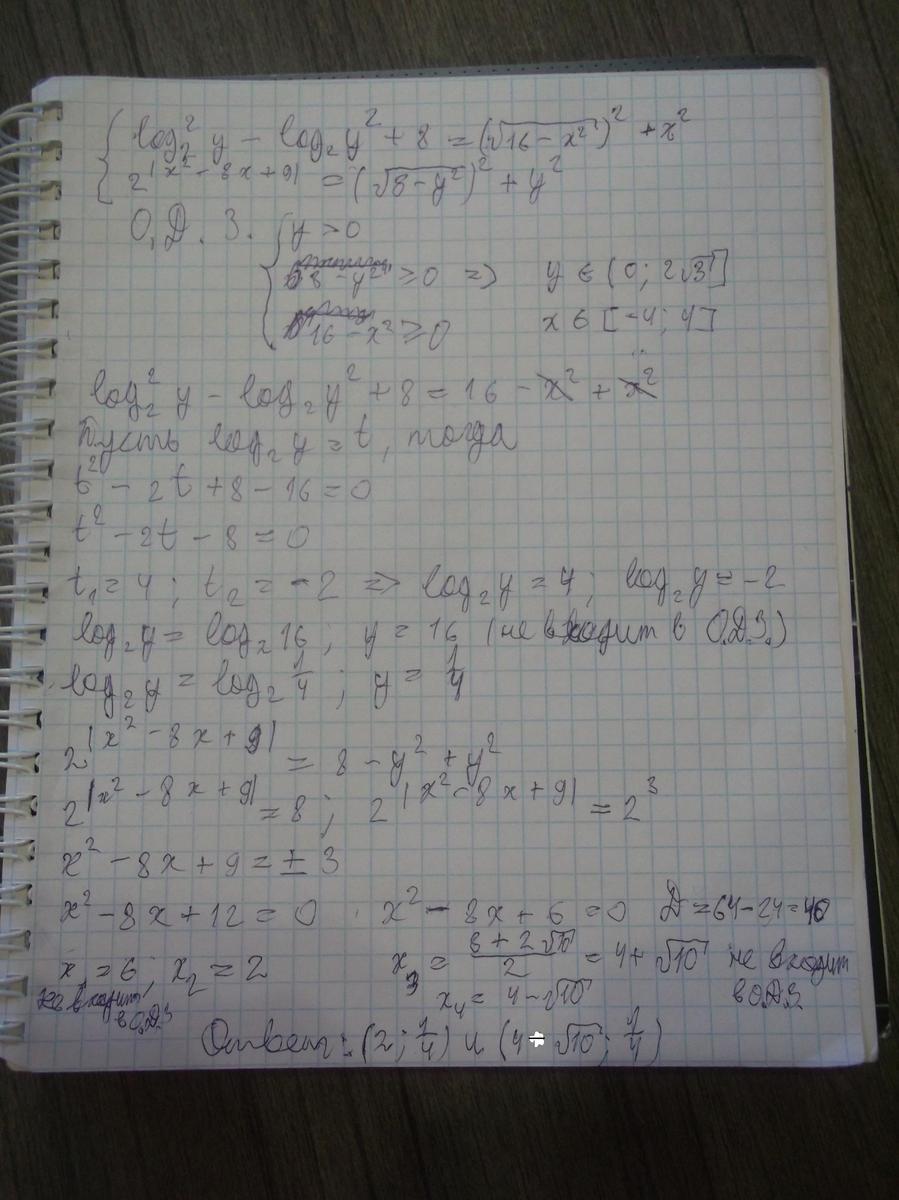 { log₂² y - log₂ y² + 8 = (√(16 - x²))² + x²
2^|x² - 8x + 9| = (√(8 - y²))² + y²
О.Д.З. { y > 0
8 - y² ≥ 0 => y ∈ (0; 2√3]
16 - x² ≥ 0 x ∈ [-4; 4]
log₂² y - log₂ y² + 8 = 16 - x² + x²
Пусть log₂ y = t, тогда
t² - 2t + 8 - 16 = 0
t² - 2t - 8 = 0
t₁ = 4; t₂ = -2 => log₂ y = 4; log₂ y = -2
log₂ y = log₂ 16, y = 16 (не входит в О.Д.З.)
log₂ y = log₂ 1/4; y = 1/4
2^|x² - 8x + 9| = 8 - y² + y²
2^|x² - 8x + 9| = 8; 2^|x² - 8x + 9| = 2³
x² - 8x + 9 = ± 3
x² - 8x + 12 = 0 x² - 8x + 6 = 0 Д = 64 - 24 = 40
x₁ = 6; x₂ = 2 x₃ = (8 + 2√10)/2 = 4 + √10 не входит
не входит в О.Д.З x₄ = 4 - √10 в О.Д.З
Ответ: (2; 1/4) и (4 - √10; 1/4)